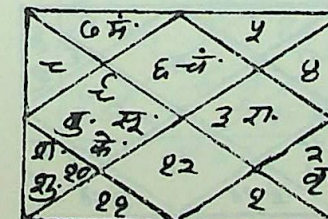 ७ मं. ५
८ ६ चं. ४
९
बु. सू. ३ रा.
श. के. २
शु. १० १२ बृ
११ १